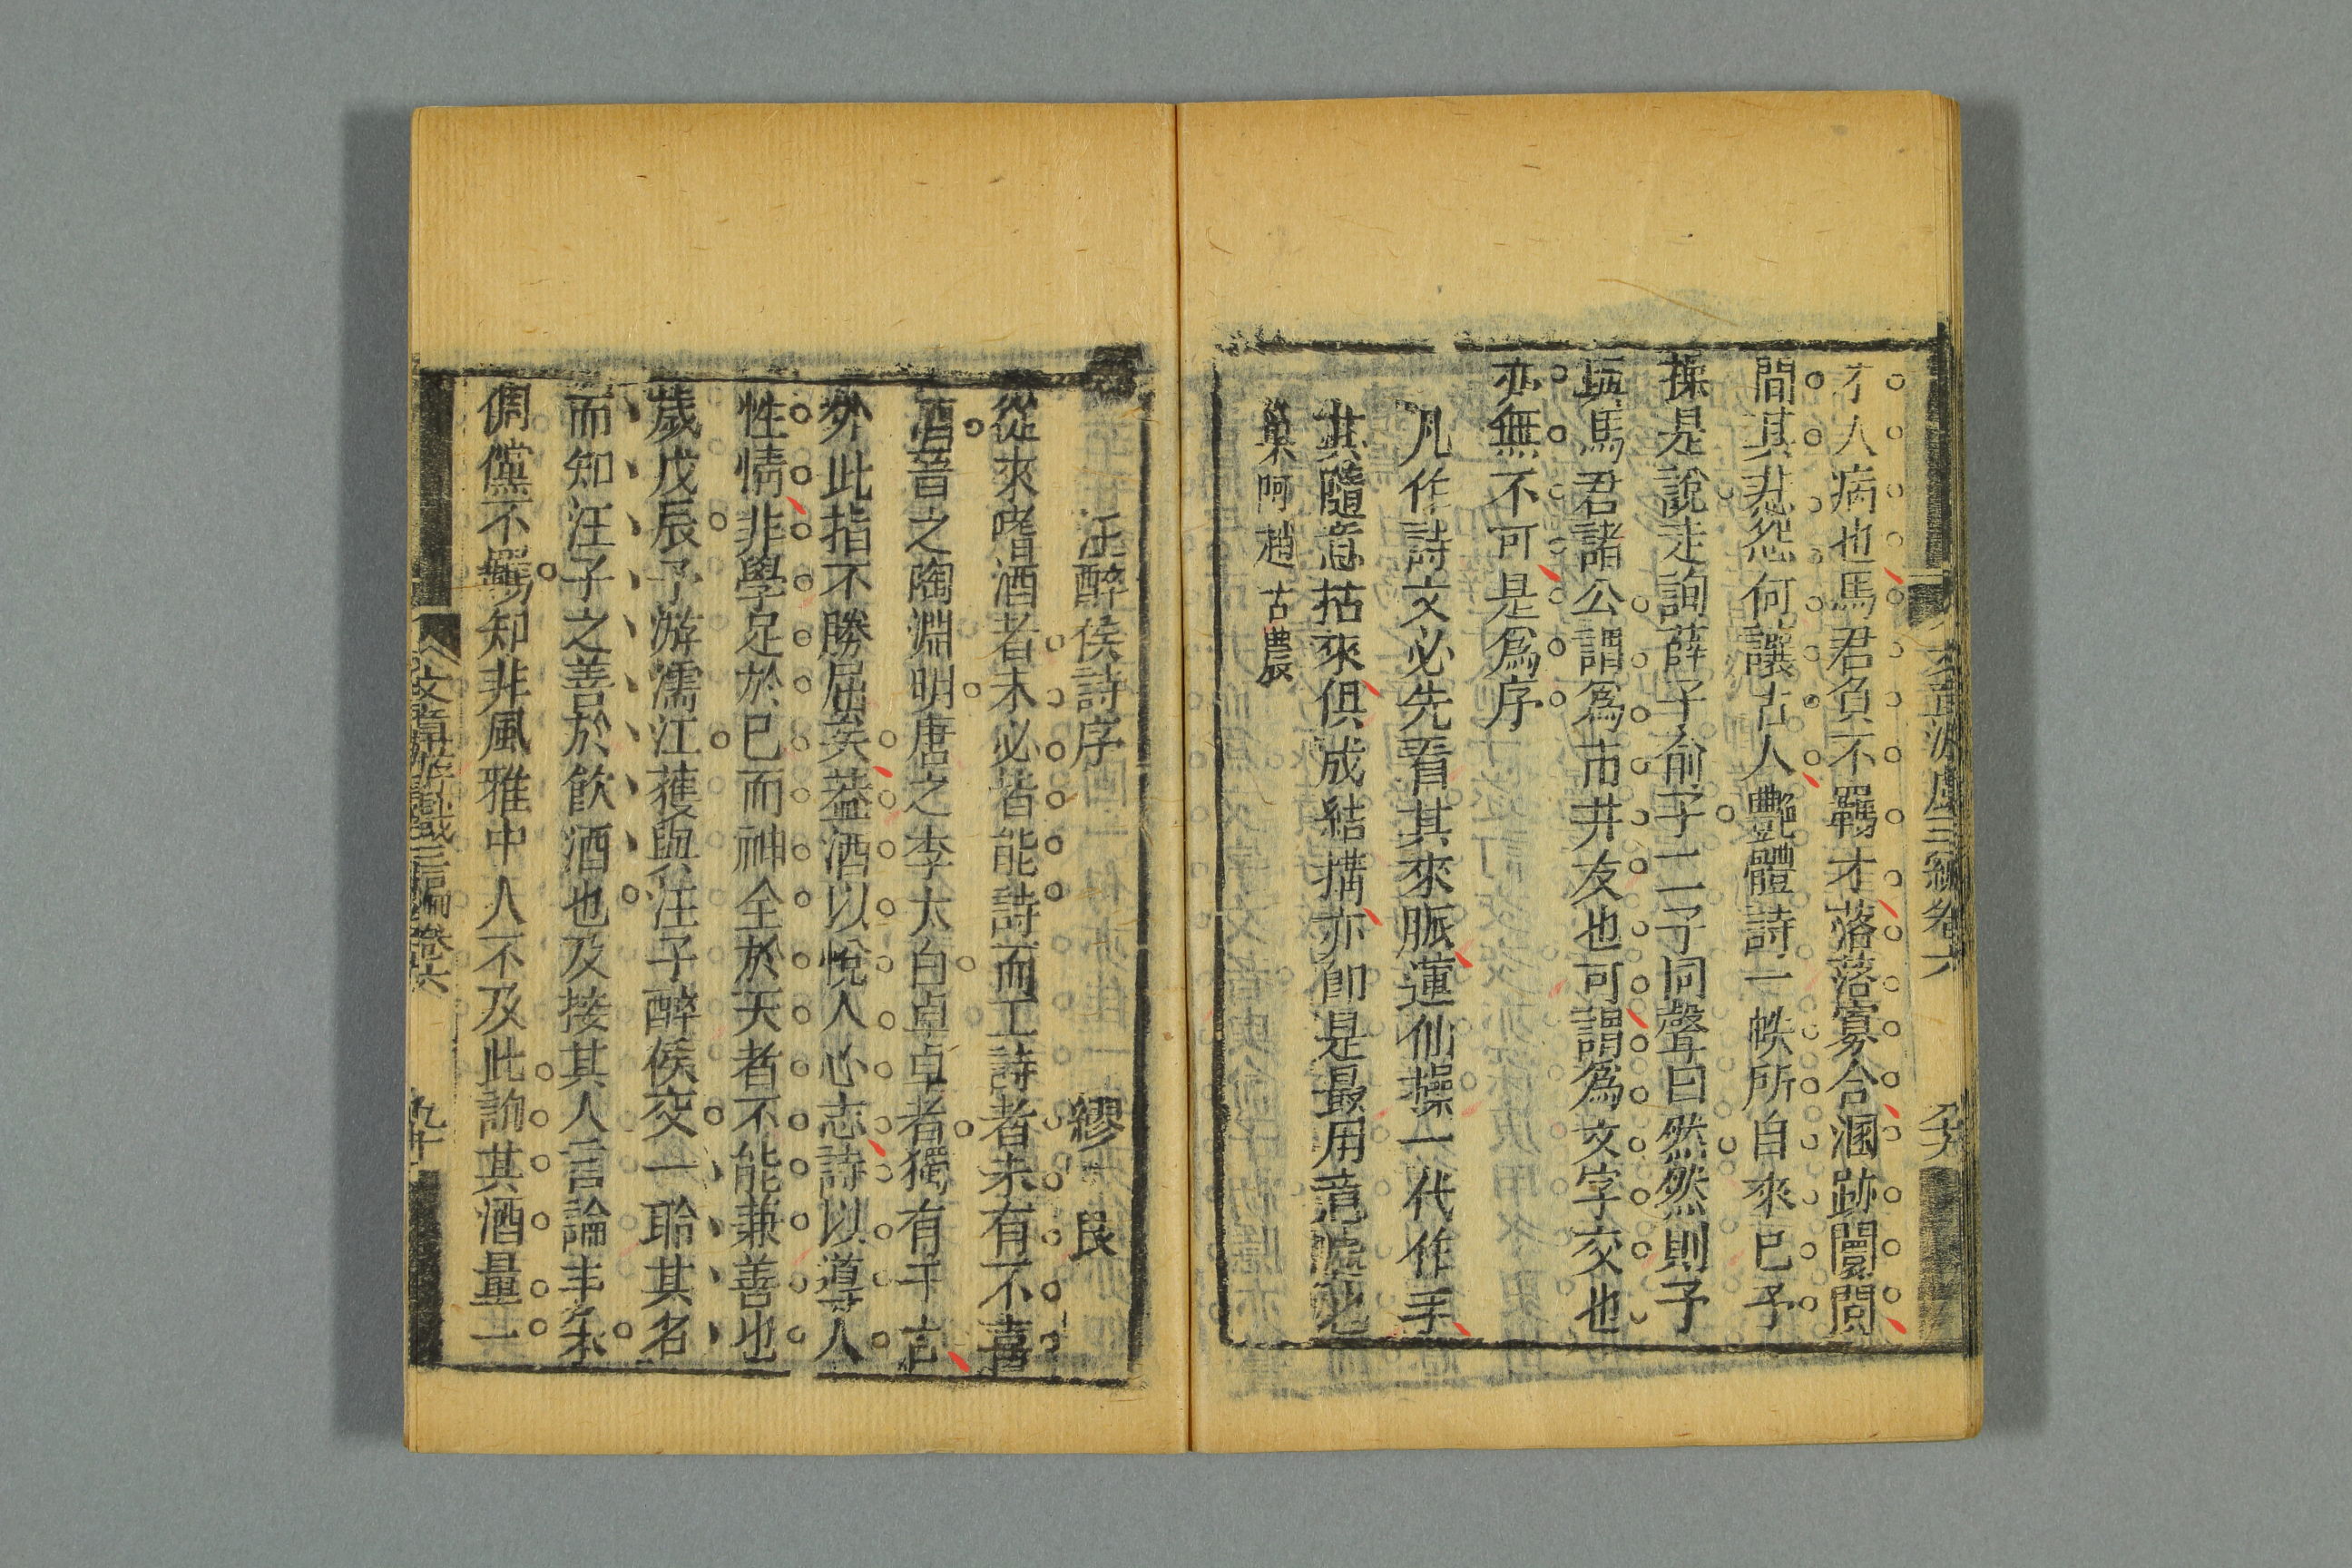 文章游戲三編卷六
才人病也馬君負不羈才落落寡合溷跡闤闠
間其悲怨何讓古人艷體詩一帙所自來已予
操是說走詢薛子俞子二子同聲曰然然則予
與馬君諸公謂為市井友也可謂為文字交也
亦無不可是為序
凡作詩文必先看其來脈蓮仙操一代作手
其隨意拈來俱成結搆亦卽是最用意處也
巢阿趙古農
汪醉侯詩序
繆艮
從來嗜酒者未必皆能詩而工詩者未有不喜
酒晉之陶淵明唐之李太白卓卓者獨有千古
外此指不勝屈矣葢酒以悅人心志詩以導人
性情非學足於己而神全於天者不能兼善也
歲戊辰予游濡江獲與汪子醉侯交一聆其名
而知汪子之善於飲酒也及接其人言論丰采
倜儻不羈知非風雅中人不及此詢其酒量一
文章游戲三編卷六